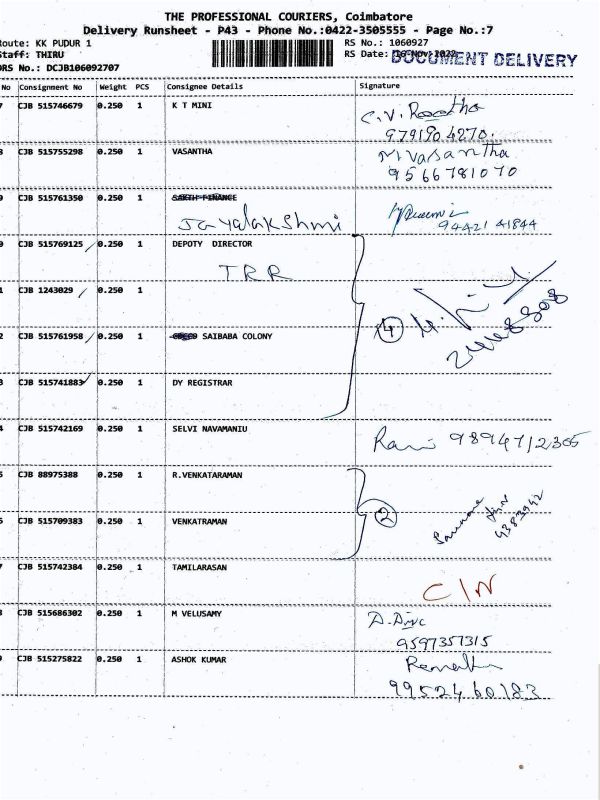 THE PROFESSIONAL COURIERS, Coimbatore
Delivery Runsheet - P43 - Phone No.:0422-3505555 - Page No.:7
Route: KK PUDUR 1 RS No.: 1060927
Staff: THIRU RS Date: 16-Nov-2022 DOCUMENT DELIVERY
DRS No.: DCJB106092707
No Consignment No Weight PCS Consignee Details Signature
7 CJB 515746679 0.250 1 K T MINI C.V.
8 CJB 515755298 0.250 1 VASANTHA Vasantha
9566781070
9 CJB 515761350 0.250 1 SAKTH FINANCE
Jayalakshmi 94421 41844
0 CJB 515769125 0.250 1 DEPOTY DIRECTOR
TRR
1 CJB 1243029 0.250 1
2 CJB 515761958 0.250 1 SAIBABA COLONY 4
3 CJB 515741883 0.250 1 DY REGISTRAR
4 CJB 515742169 0.250 1 SELVI NAVAMANIU Rani
5 CJB 88975388 0.250 1 R.VENKATARAMAN
6 CJB 515709383 0.250 1 VENKATRAMAN 2 4383942
7 CJB 515742384 0.250 1 TAMILARASAN
C/N
8 CJB 515686302 0.250 1 M VELUSAMY
9597357315
9 CJB 515275822 0.250 1 ASHOK KUMAR
9952460183